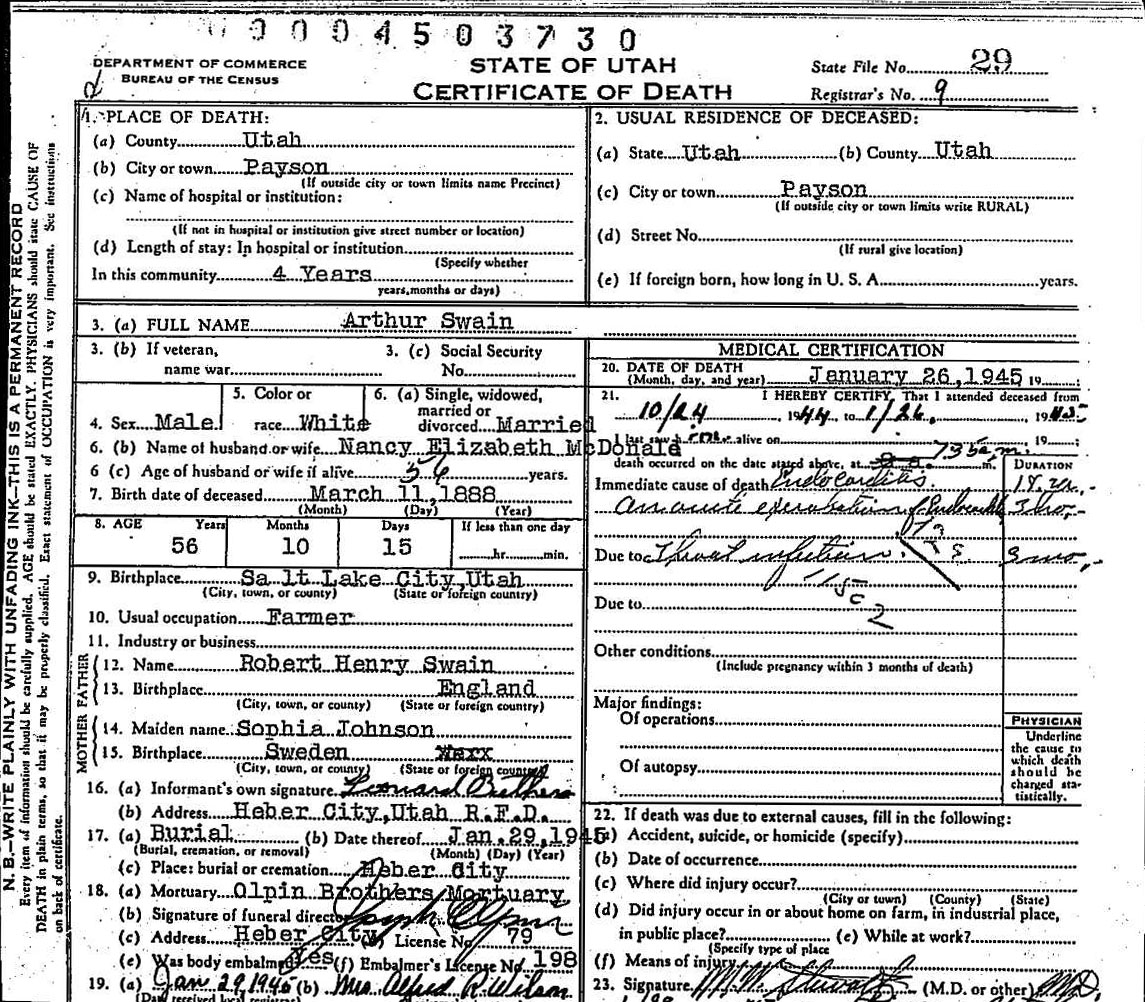 0 0 0 4 5 0 3 7 3 0
DEPARTMENT OF COMMERCE
BUREAU OF THE CENSUS
STATE OF UTAH
CERTIFICATE OF DEATH
State File No. 29
Registrar's No. 9
N. B.—WRITE PLAINLY WITH UNFADING INK—THIS IS A PERMANENT RECORD
Every item of information should be carefully supplied. AGE should be stated EXACTLY. PHYSICIANS should state CAUSE OF
DEATH in plain terms, so that it may be properly classified. Exact statement of OCCUPATION is very important. See instructions
on back of certificate.
1. PLACE OF DEATH:
(a) County Utah
(b) City or town Payson
(If outside city or town limits name Precinct)
(c) Name of hospital or institution:
(If not in hospital or institution give street number or location)
(d) Length of stay: In hospital or institution
(Specify whether
In this community 4 Years
years, months or days)
2. USUAL RESIDENCE OF DECEASED:
(a) State Utah (b) County Utah
(c) City or town Payson
(If outside city or town limits write RURAL)
(d) Street No.
(If rural give location)
(e) If foreign born, how long in U. S. A. years.
3. (a) FULL NAME Arthur Swain
3. (b) If veteran,
name war
3. (c) Social Security
No.
4. Sex Male
5. Color or
race White
6. (a) Single, widowed,
married or
divorced Married
6. (b) Name of husband or wife Nancy Elizabeth McDonald
6 (c) Age of husband or wife if alive 56 years.
7. Birth date of deceased March 11, 1888
(Month) (Day) (Year)
8. AGE Years Months Days If less than one day
56 10 15 hr. min.
9. Birthplace Salt Lake City, Utah
(City, town, or county) (State or foreign country)
10. Usual occupation Farmer
11. Industry or business
FATHER
12. Name Robert Henry Swain
13. Birthplace England
(City, town, or county) (State or foreign country)
MOTHER
14. Maiden name Sophia Johnson
15. Birthplace Sweden
(City, town, or county) (State or foreign country)
16. (a) Informant's own signature Leonard
(b) Address Heber City, Utah R.F.D.
17. (a) Burial (b) Date thereof Jan. 29, 1945
(Burial, cremation, or removal) (Month) (Day) (Year)
(c) Place: burial or cremation Heber City
18. (a) Mortuary Olpin Brothers Mortuary
(b) Signature of funeral director Joseph Olpin
(c) Address Heber City (d) License No. 79
(e) Was body embalmed Yes (f) Embalmer's License No. 198
19. (a) Jan 29, 1945 (b) Mrs. Alfred R. Wilson
(Date received local registrar)
MEDICAL CERTIFICATION
20. DATE OF DEATH
(Month, day, and year) January 26, 1945 19
21. I HEREBY CERTIFY, That I attended deceased from
10/24 1944 to 1/26 1945
I last saw him alive on 19
death occurred on the date stated above, at 735 a.m. m.
DURATION
Immediate cause of death Endocarditis
An acute Endocarditis 3 mo.
Due to Throat infection 3 mo.
Due to
Other conditions
(Include pregnancy within 3 months of death)
Major findings:
Of operations
Of autopsy
PHYSICIAN
Underline
the cause to
which death
should be
charged sta-
tistically.
22. If death was due to external causes, fill in the following:
(a) Accident, suicide, or homicide (specify)
(b) Date of occurrence
(c) Where did injury occur?
(City or town) (County) (State)
(d) Did injury occur in or about home on farm, in industrial place,
in public place? (e) While at work?
(Specify type of place
(f) Means of injury
23. Signature Stewart (M.D. or other) MD